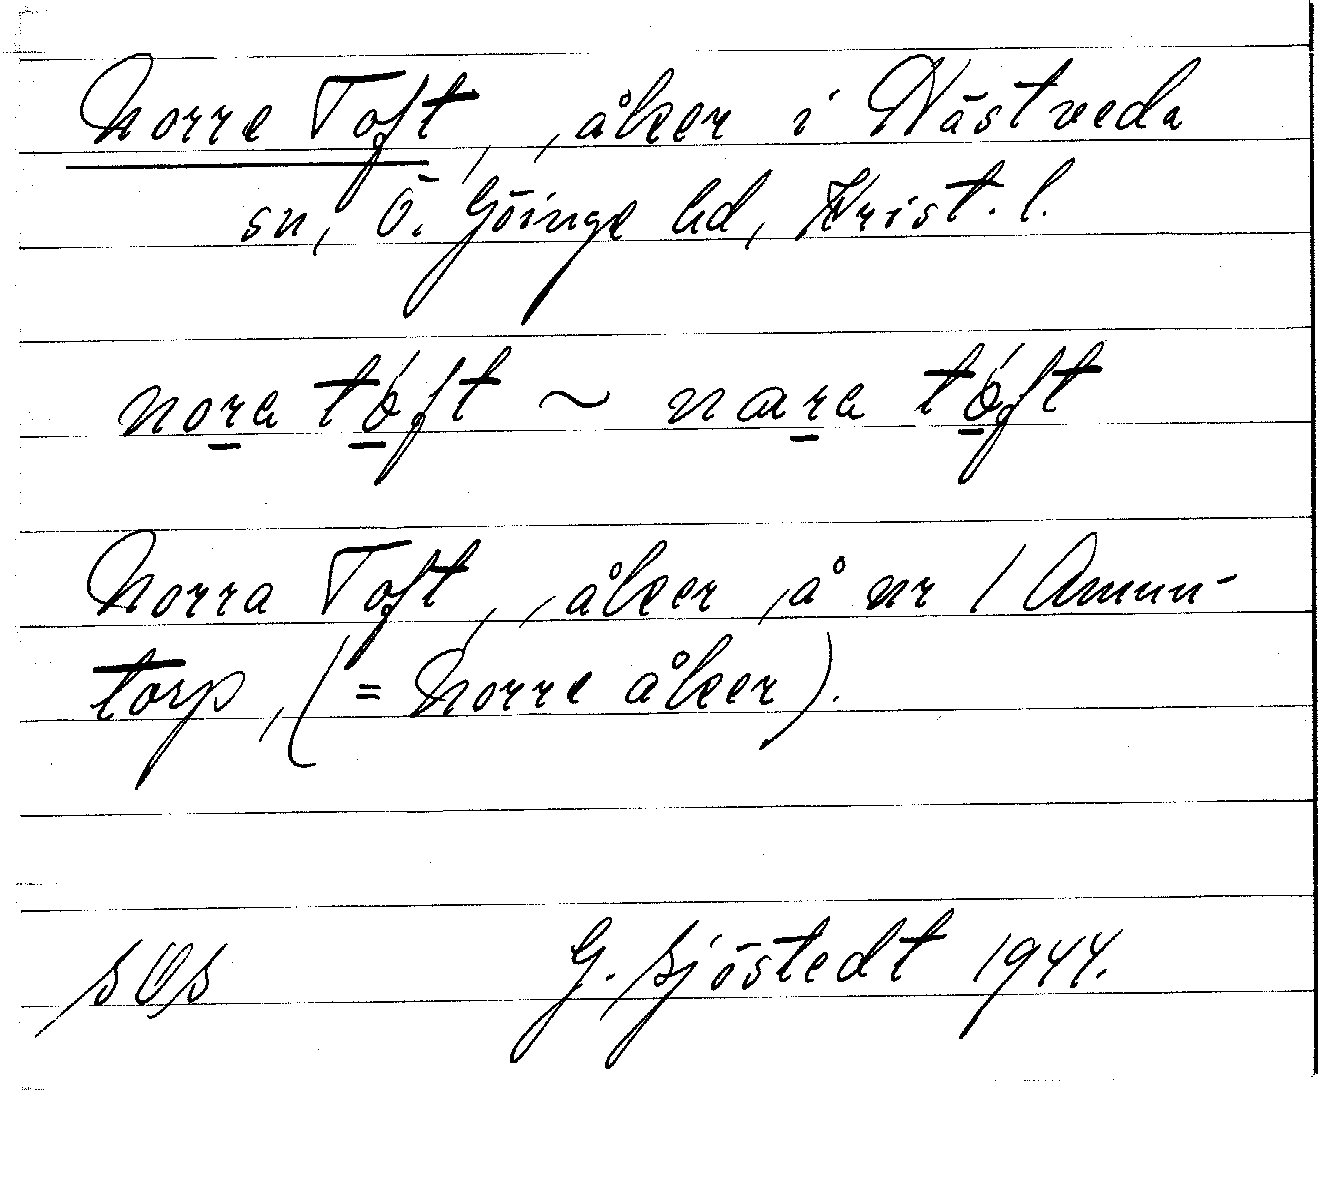 Norre Toft, , åker i Nästveda
sn, Ö. Göinge hd, Krist. l.
nora tóft ~ næra tóft
Norra Toft, , åker , å nr 1 Amun-
torp, (= Norre åker).
sOs G. Sjöstedt 1944.